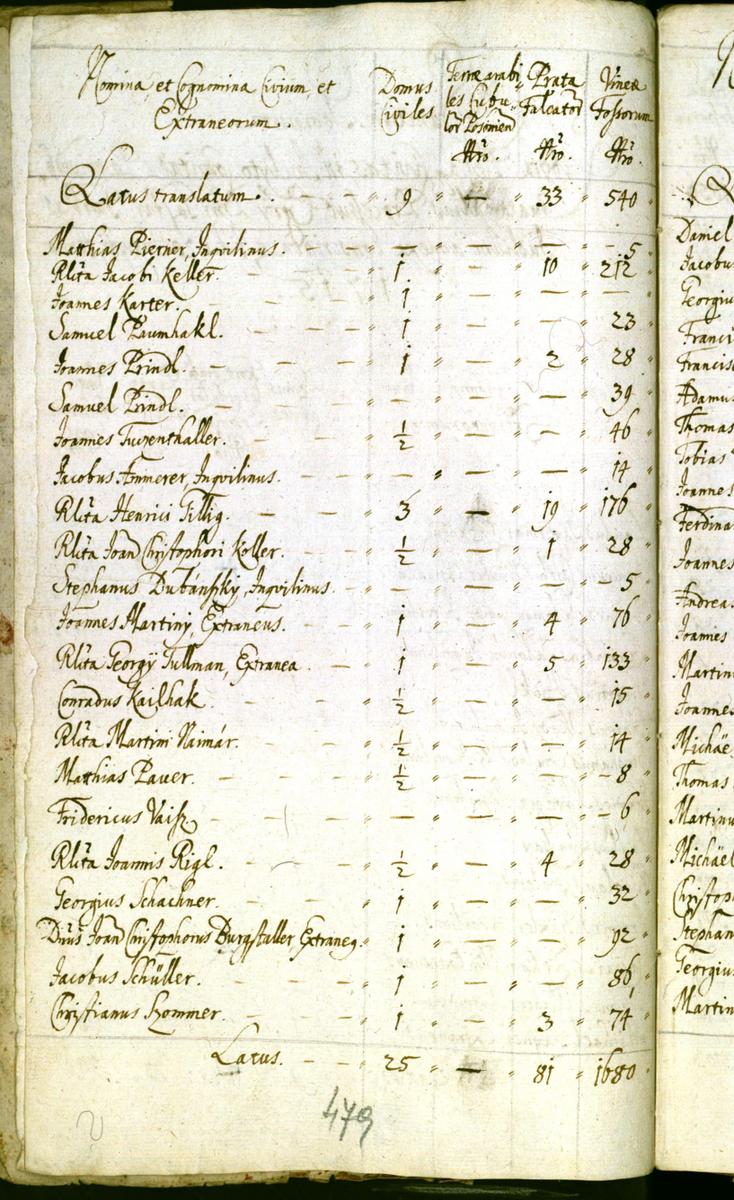 Nomina et Cognomina Civium et Extraneorum. Domus Civiles Terræ arabiles Cubulor Posonien Nro. Prata Falcator Nro. Vineæ Fossorum Nro.
Latus translatum. - - " 9 " — " 33 " 540 "
Matthias Pierner, Inqvilinus. - " — " — " — " - 5 "
Rlita Jacobi Keller. - - " 1 " — " 10 " 212 "
Joannes Karter. - - - " 1 " — " — " — "
Samuel Paumhakl. - - " 1 " — " — " 23 "
Joannes Prindl. - - - " 1 " — " 2 " 28 "
Samuel Prindl. - - - " — " — " — " 39 "
Joannes Tuventhaller. - - " ½ " — " — " 46 "
Jacobus Ammerer, Inqvilinus. - " — " — " — " 14 "
Rlita Henrici Tillig. - - " 3 " — " 19 " 176 "
Rlita Joan Christophori Koller. - " ½ " — " 1 " 28 "
Stephanus Dubánszky, Inqvilinus. " — " — " — " - 5 "
Joannes Martiny, Extraneus. - " 1 " — " 4 " 76 "
Rlita Georgÿ Tullman, Extranea - " 1 " — " 5 " 133 "
Conradus Kailhak. - - " ½ " — " — " 15 "
Rlita Martini Naimár. - - " ½ " — " — " 14 "
Matthias Paver. - - - " ½ " — " — " - 8 "
Fridericus Vaisz - - - " — " — " — " - 6 "
Rlita Joannis Rigl. - - " ½ " — " 4 " 28 "
Georgius Schachner. - - " 1 " — " — " 32 "
Dnus Joan Christophorus Burgstaller Extraneg. " 1 " — " — " 92 "
Jacobus Schüller. - - " 1 " — " — " 86 "
Christianus Hommer. - - " 1 " — " 3 " 74 "
Latus. - - " 25 " — " 81 " 1680 "
479
Daniel
Jacobu
Georgiu
Franci
Francis
Adamu
Thomas
Tobias
Joannes
Ferdina
Joannes
Andrea
Joannes
Martin
Joannes
Michäe
Thomas
Martinu
Michäel
Christop
Stephan
Georgiu
Martin